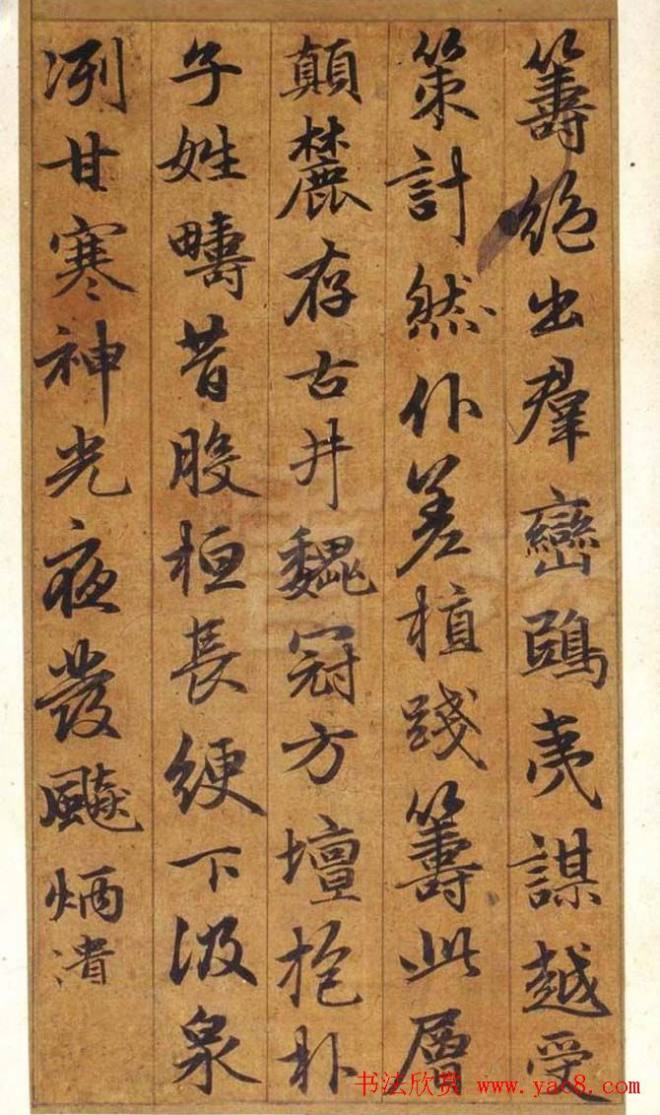 籌絶出羣巒鴟夷謀越受
策計然仆差植踐籌此層
顛麓存古井魏冠方壇抱朴
子姓疇昔般桓長綆下汲泉
冽甘寒神光夜發飈炳潰
书法欣赏 www.yac8.com